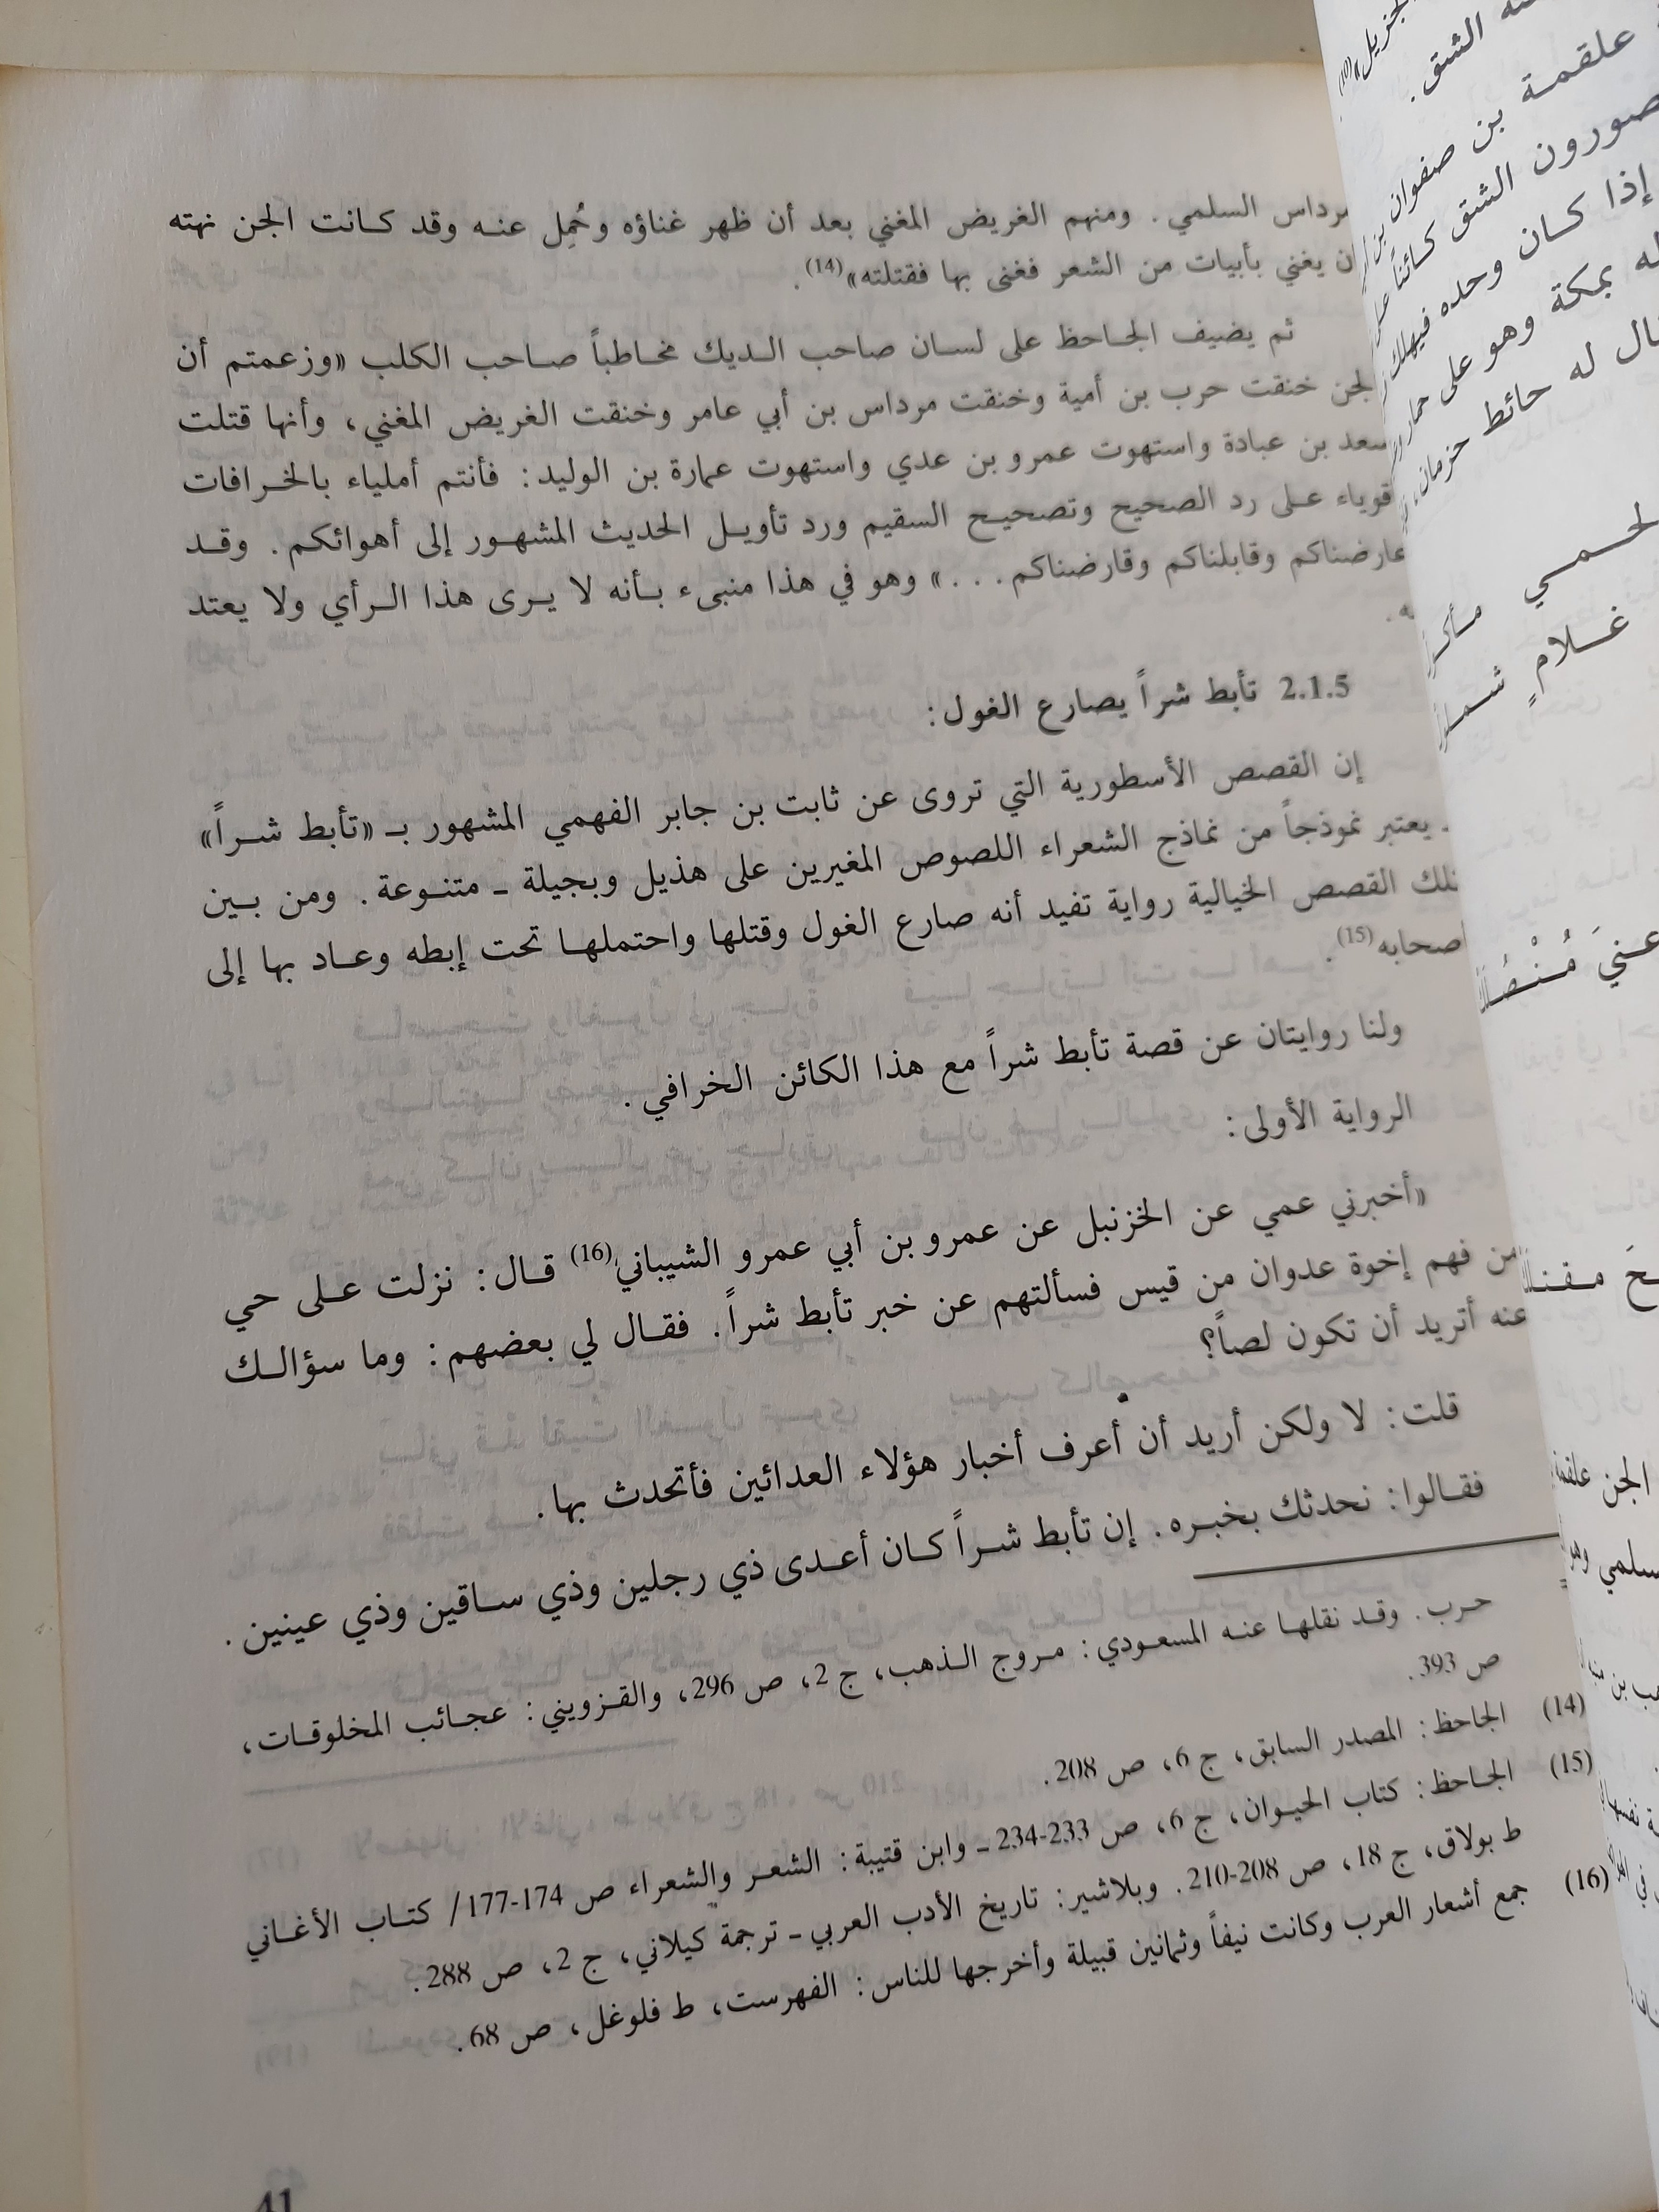 مرداس السلمي. ومنهم الغريض المغني بعد أن ظهر غناؤه وحُمِل عنه وقد كانت الجن نهته
ان يغني بأبيات من الشعر فغنى بها فقتلته»(14).
ثم يضيف الجاحظ على لسان صاحب الديك مخاطباً صاحب الكلب «وزعمتم أن
لجن خنقت حرب بن أمية وخنقت مرداس بن أبي عامر وخنقت الغريض المغني، وأنها قتلت
سعد بن عبادة واستهوت عمرو بن عدي واستهوت عمارة بن الوليد: فأنتم أملياء بالخرافات
قوياء على رد الصحيح وتصحيح السقيم ورد تأويل الحديث المشهور إلى أهوائكم. وقد
عارضناكم وقابلناكم وقارضناكم...» وهو في هذا منبىء بأنه لا يرى هذا الرأي ولا يعتد
ه.
2.1.5 تأبط شراً يصارع الغول:
إن القصص الأسطورية التي تروى عن ثابت بن جابر الفهمي المشهور بـ «تأبط شراً»
ـ يعتبر نموذجاً من نماذج الشعراء اللصوص المغيرين على هذيل وبجيلة ـ متنوعة. ومن بين
تلك القصص الخيالية رواية تفيد أنه صارع الغول وقتلها واحتملها تحت إبطه وعاد بها إلى
صحابه(15).
ولنا روايتان عن قصة تأبط شراً مع هذا الكائن الخرافي.
الرواية الأولى:
«أخبرني عمي عن الخزنبل عن عمرو بن أبي عمرو الشيباني(16) قال: نزلت على حي
من فهم إخوة عدوان من قيس فسألتهم عن خبر تأبط شراً. فقال لي بعضهم: وما سؤالك
عنه أتريد أن تكون لصاً؟
قلت: لا ولكن أريد أن أعرف أخبار هؤلاء العدائين فأتحدث بها.
فقالوا: نحدثك بخبره. إن تأبط شراً كان أعدى ذي رجلين وذي ساقين وذي عينين.
حرب. وقد نقلها عنه المسعودي: مروج الذهب، ج 2، ص 296، والقزويني: عجائب المخلوقات،
ص 393.
(14) الجاحظ: المصدر السابق، ج 6، ص 208.
(15) الجاحظ: كتاب الحيوان، ج 6، ص 233-234 ـ وابن قتيبة: الشعر والشعراء ص 174-177/ كتاب الأغاني
ط بولاق، ج 18، ص 208-210. وبلاشير: تاريخ الأدب العربي ـ ترجمة كيلاني، ج 2، ص 288.
(16) جمع أشعار العرب وكانت نيفاً وثمانين قبيلة وأخرجها للناس: الفهرست، ط فلوغل، ص 68.
41
الشق.
علقمة بن صفوان بن
صورون الشق كائناً على
إذا كان وحده فيهلك
له بمكة وهو على حمار
ال له حائط حزمان،
لحمي
غلامٍ
عنيَ مُنْصُلَك
الجن علقمة
سلمي وهو